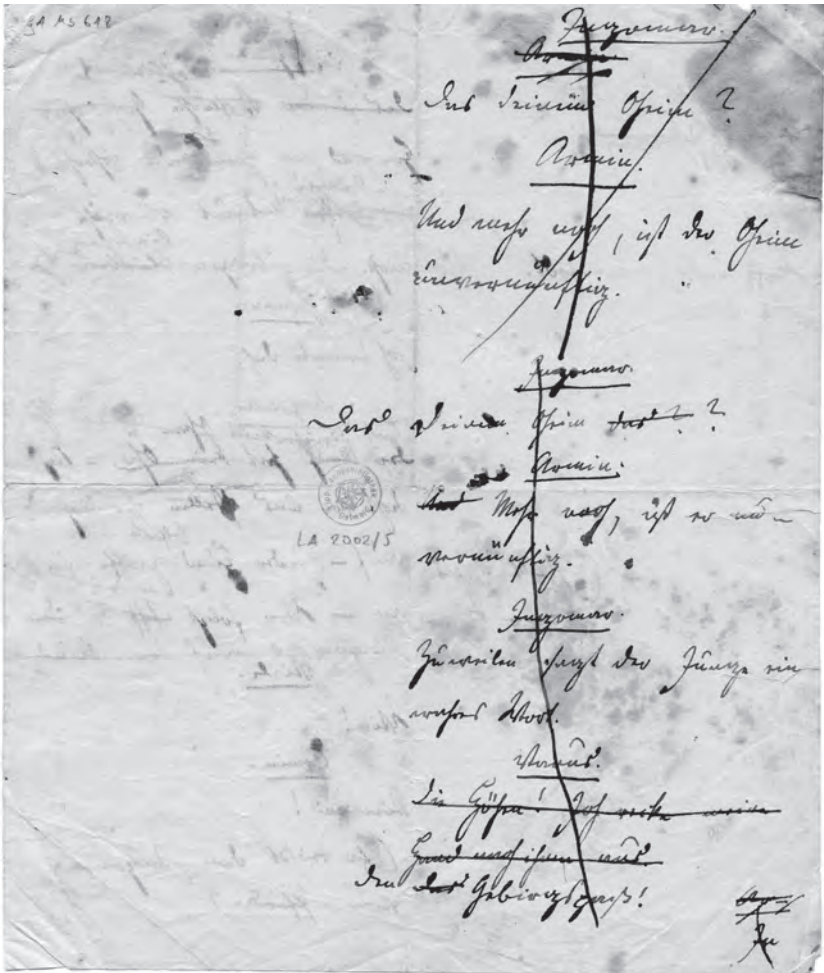 GA MS 618
Ingomar.
Armin
Das deinem Oheim?
Armin.
Und mehr noch, ist der Oheim
unvernünftig.
Ingomar.
Das Deinem Oheim das? ?
Armin.
Und Mehr noch, ist er un-
vernünftig.
LA 2002/5
Ingomar.
Zuweilen sagt der Junge ein
wahres Wort.
Varus.
Die Höhen! Ich recke meine
Hand nach ihnen aus.
Den das Gebirgspaß!
Ar
In